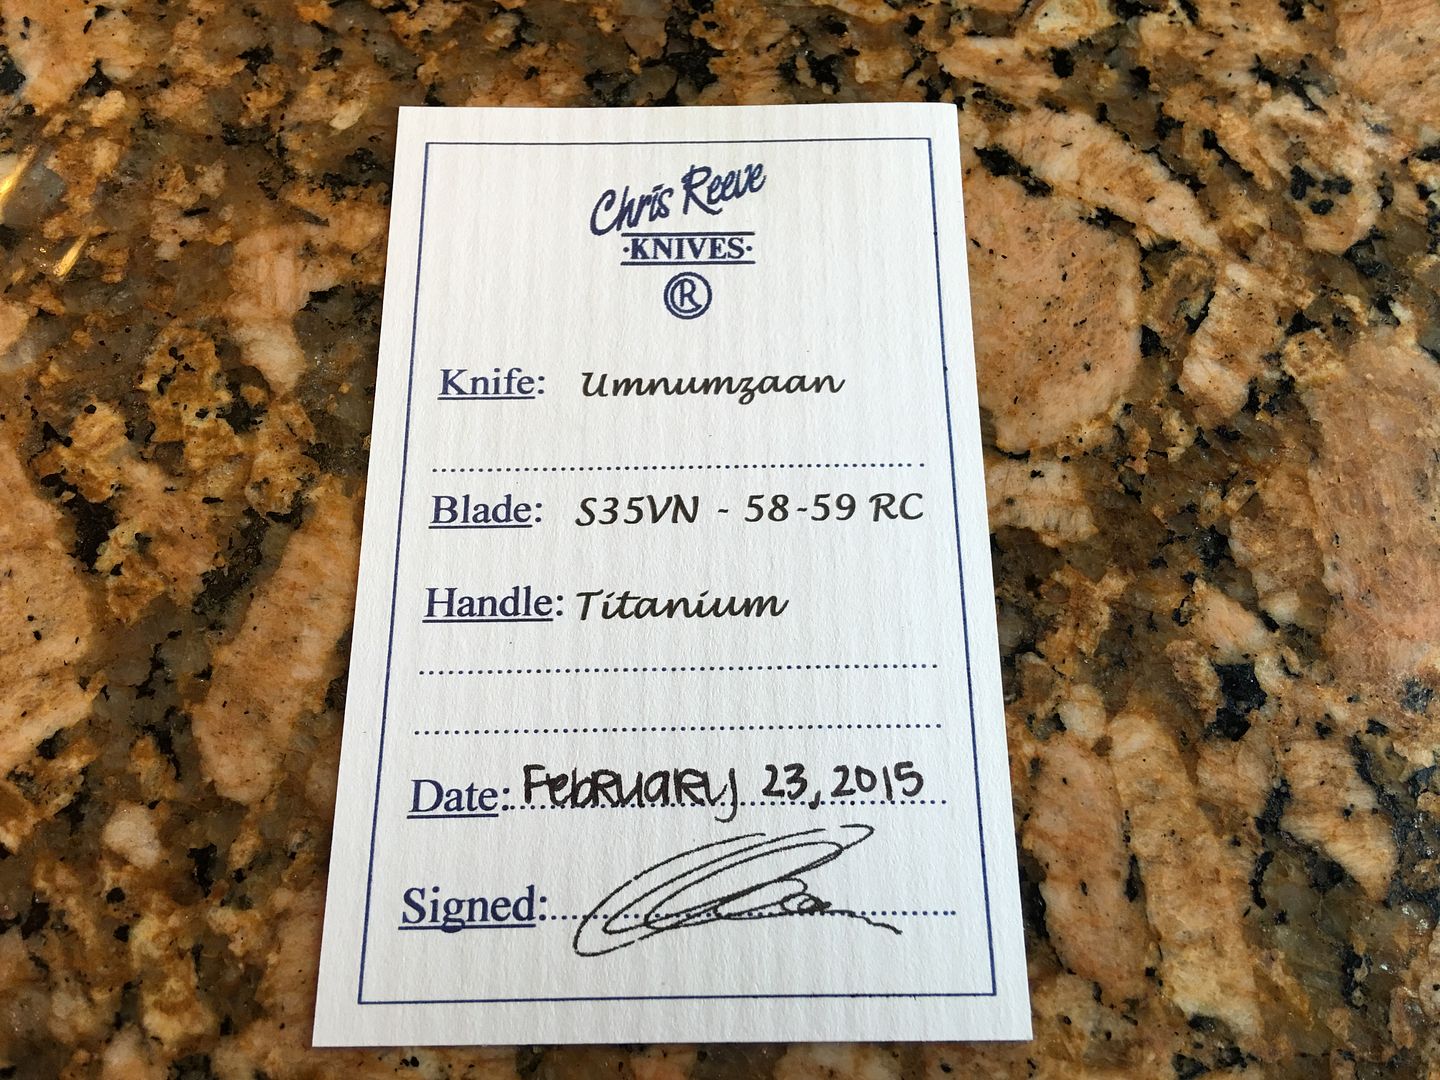 Chris Reeve
·KNIVES·
®
Knife: Umnumzaan
Blade: S35VN - 58-59 RC
Handle: Titanium
Date: February 23, 2015
Signed: